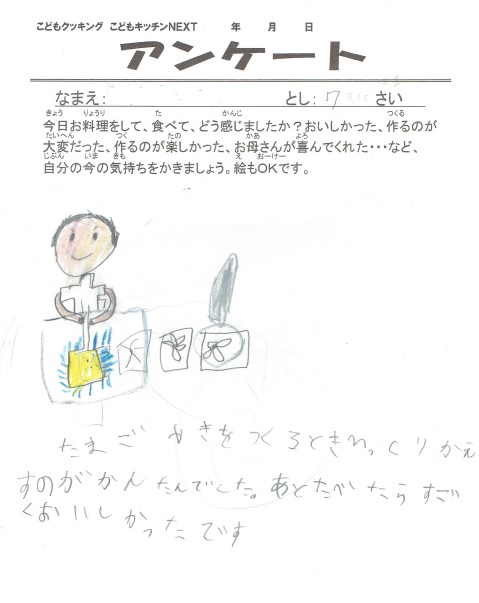 こどもクッキング こどもキッチンNEXT 年 月 日
アンケート
なまえ: とし: 7 さい
きょう りょうり た かんじ つくる
今日お料理をして、食べて、どう感じましたか?おいしかった、作るのが
たいへん つく たの かあ よろ
大変だった、作るのが楽しかった、お母さんが喜んでくれた・・・など、
じぶん いま きも え おーけー
自分の今の気持ちをかきましょう。絵もOKです。
たまごやきをつくるときひっくりかえ
すのがかんたんでした。あとたべたらすご
くおいしかったです